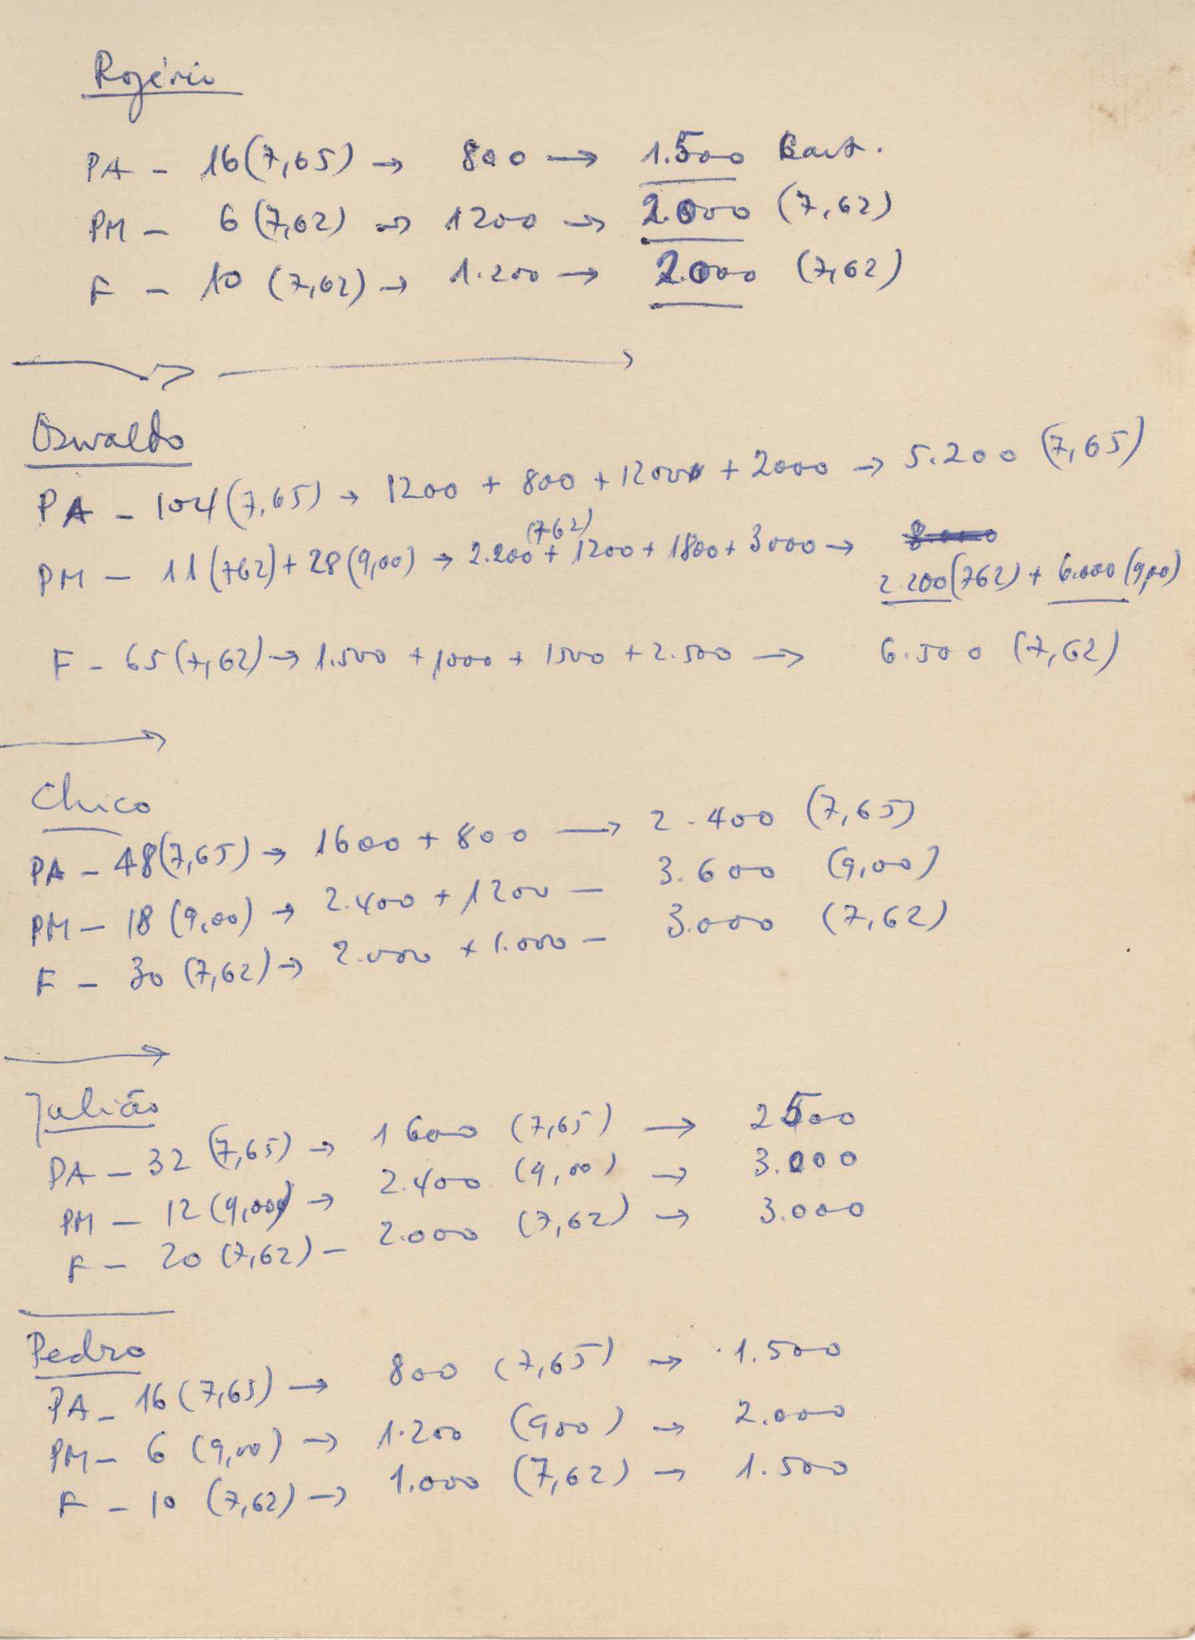 Rogério
PA - 16 (7,65) → 800 → 1.500 Cart.
PM - 6 (7,62) → 1200 → 2.000 (7,62)
F - 10 (7,62) → 1.200 → 2.000 (7,62)
Oswaldo
PA - 104 (7,65) → 1200 + 800 + 1200 + 2000 → 5.200 (7,65)
(762)
PM - 11 (762) + 28 (9,00) → 2.200 + 1200 + 1800 + 3000 → 8000
2.200 (762) + 6.000 (9,00)
F - 65 (7,62) → 1.500 + 1000 + 1500 + 2.500 → 6.500 (7,62)
Chico
PA - 48 (7,65) → 1600 + 800 → 2.400 (7,65)
PM - 18 (9,00) → 2.400 + 1200 - 3.600 (9,00)
F - 30 (7,62) → 2.000 + 1.000 - 3.000 (7,62)
Julião
PA - 32 (7,65) → 1600 (7,65) → 2500
PM - 12 (9,00) → 2.400 (9,00) → 3.000
F - 20 (7,62) - 2.000 (7,62) → 3.000
Pedro
PA - 16 (7,65) → 800 (7,65) → 1.500
PM - 6 (9,00) → 1.200 (900) → 2.000
F - 10 (7,62) → 1.000 (7,62) → 1.500